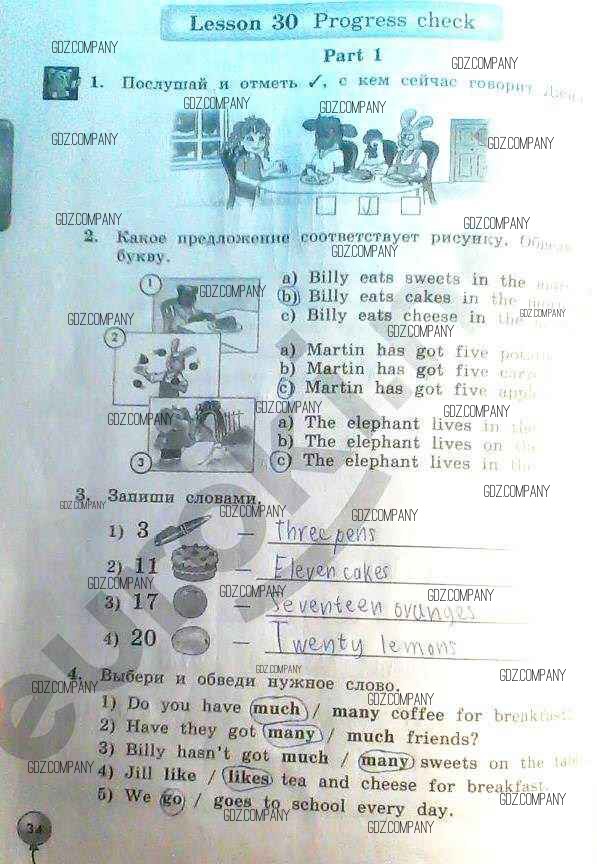 Lesson 30 Progress check
Part 1
1. Послушай и отметь ✓, с кем сейчас говорит
✓
2. Какое предложение соответствует рисунку.
букву.
1
a) Billy eats sweets in the
b) Billy eats cakes in the
c) Billy eats cheese in the
2
a) Martin has got five
b) Martin has got five
c) Martin has got five
3
a) The elephant lives in the
b) The elephant lives on the
c) The elephant lives in the
3. Запиши словами.
1) 3 — Three pens
2) 11 — Eleven cakes
3) 17 — Seventeen oranges
4) 20 — Twenty lemons
4. Выбери и обведи нужное слово.
1) Do you have much / many coffee for breakfast?
2) Have they got many / much friends?
3) Billy hasn't got much / many sweets on the
4) Jill like / likes tea and cheese for breakfast.
5) We go / goes to school every day.
34
GDZ.COMPANY